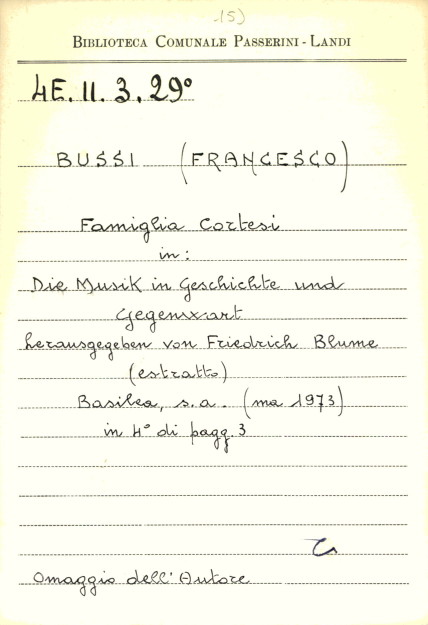 (5)
BIBLIOTECA COMUNALE PASSERINI - LANDI
4E. II. 3. 29°
BUSSI (FRANCESCO)
Famiglia Cortesi
in:
Die Musik in Geschichte und
Gegenwart
herausgegeben von Friedrich Blume
(estratto)
Basilea, s.a. (ma 1973)
in 4° di pagg. 3
Omaggio dell'Autore